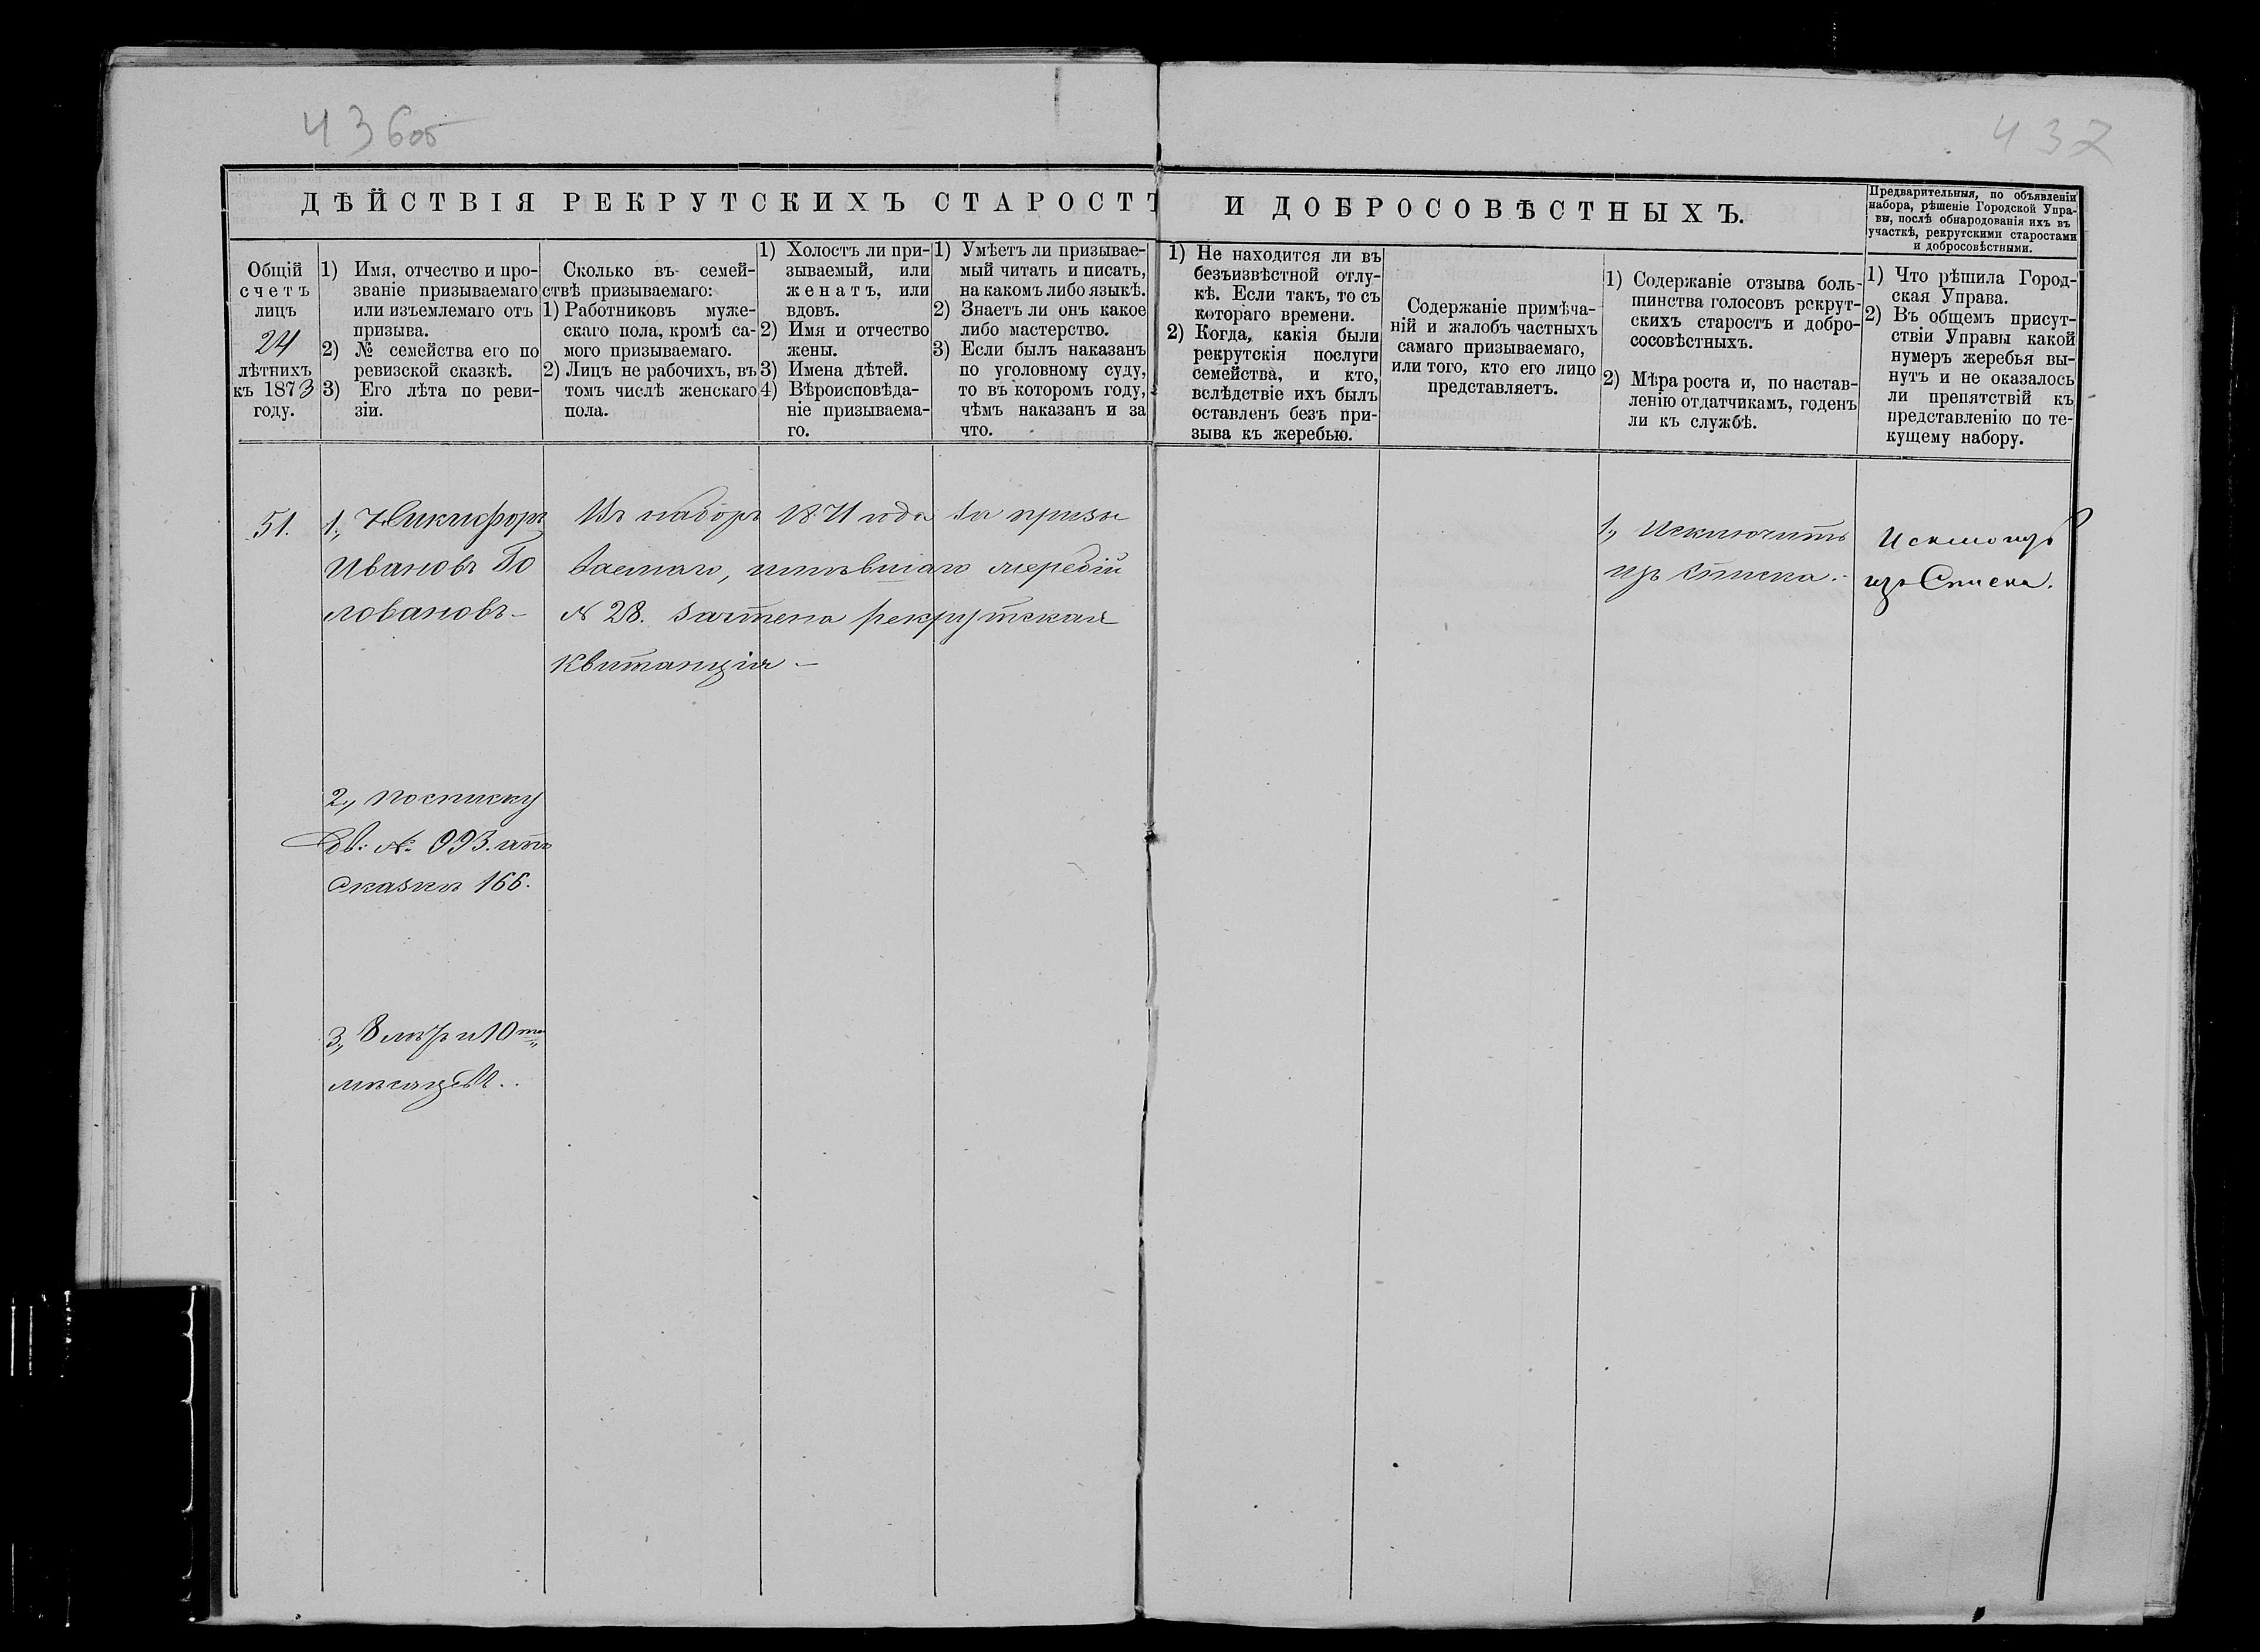 436об
437
ДѢЙСТВІЯ РЕКРУТСКИХЪ СТАРОСТЪ И ДОБРОСОВѢСТНЫХЪ.
Предварительныя, по объявленіи
набора, рѣшеніе Городской Упра-
вы, послѣ обнародованія ихъ въ
участкѣ, рекрутскими старостами
и добросовѣстными.
Общій
счетъ
лицъ
24
лѣтнихъ
къ 1873
году.
1) Имя, отчество и про-
званіе призываемаго
или изъемлемаго отъ
призыва.
2) № семейства его по
ревизской сказкѣ.
3) Его лѣта по реви-
зіи.
Сколько въ семей-
ствѣ призываемаго:
1) Работниковъ муже-
скаго пола, кромѣ са-
мого призываемаго.
2) Лицъ не рабочихъ, въ
томъ числѣ женскаго
пола.
1) Холостъ ли при-
зываемый, или
женатъ, или
вдовъ.
2) Имя и отчество
жены.
3) Имена дѣтей.
4) Вѣроисповѣда-
ніе призываема-
го.
1) Умѣетъ ли призывае-
мый читать и писать,
на какомъ либо языкѣ.
2) Знаетъ ли онъ какое
либо мастерство.
3) Если былъ наказанъ
по уголовному суду,
то въ которомъ году,
чѣмъ наказанъ и за
что.
1) Не находится ли въ
безъизвѣстной отлу-
кѣ. Если такъ, то съ
котораго времени.
2) Когда, какія были
рекрутскія послуги
семейства, и кто,
вслѣдствіе ихъ былъ
оставленъ безъ при-
зыва къ жеребью.
Содержаніе примѣча-
ній и жалобъ частныхъ
самаго призываемаго,
или того, кто его лицо
представляетъ.
1) Содержаніе отзыва боль-
шинства голосовъ рекрут-
скихъ старостъ и добро-
сосовѣстныхъ.
2) Мѣра роста и, по настав-
ленію отдатчикамъ, годенъ
ли къ службѣ.
1) Что рѣшила Город-
ская Управа.
2) Въ общемъ присут-
ствіи Управы какой
нумеръ жеребья вы-
нутъ и не оказалось
ли препятствій къ
представленію по те-
кущему набору.
51.
1., Никифоръ
Ивановъ Го
ловановъ-
2., по списку
Дв: № 993.
Сказки 166.
3., 8 лѣтъ и 10ти
мѣсяцевъ..
Въ наборъ 1871 года за призы
ваемаго, имѣвшаго жеребій
№ 28. зачтена рекрутская
квитанція –
1., Исключить
изъ списка.
изъ Списка.